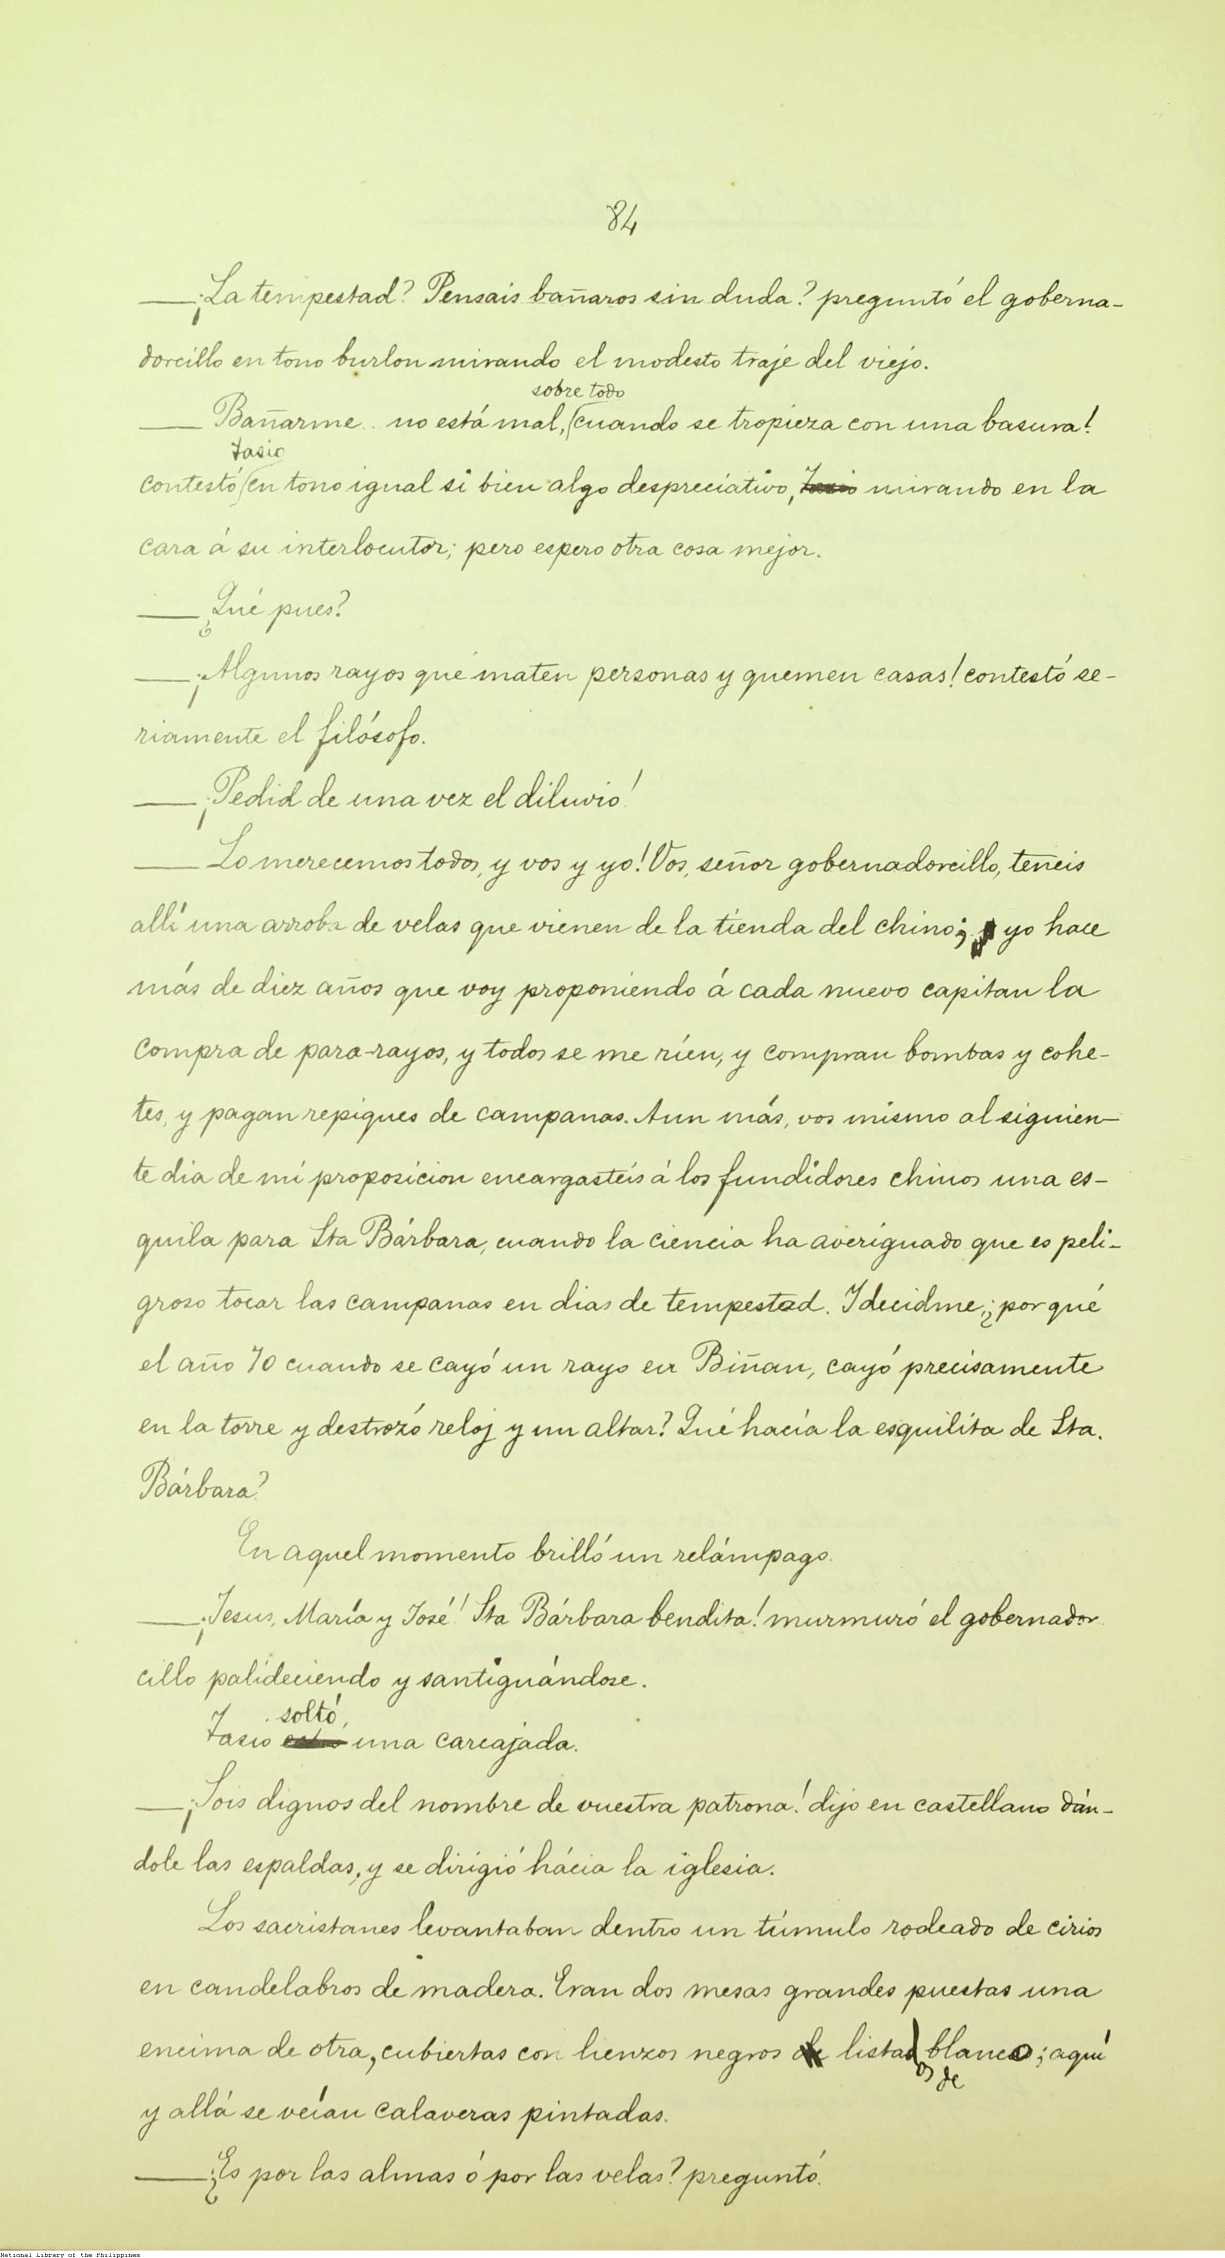 84
—¡La tempestad? Pensais bañaros sin duda? preguntó el goberna-
dorcillo en tono burlon mirando el modesto traje del viejo.
sobre todo
— Bañarme.. no está mal, (cuando se tropieza con una basura!
Tasio
contestó (en tono igual si bien algo despreciativo, Tasio mirando en la
cara á su interlocutor; pero espero otra cosa mejor.
— ¿Qué pues?
—¡Algunos rayos que maten personas y quemen casas! contestó se-
riamente el filósofo.
—¡Pedid de una vez el diluvio!
— Lo merecemos todos, y vos y yo! Vos, señor gobernadorcillo, teneis
allí una arroba de velas que vienen de la tienda del chino; yo hace
más de diez años que voy proponiendo á cada nuevo capitan la
compra de para-rayos, y todos se me ríen, y compran bombas y cohe-
tes, y pagan repiques de campanas. Aun más, vos mismo al siguien-
te dia de mi proposicion encargasteis á los fundidores chinos una es-
quila para Sta Bárbara, cuando la ciencia ha averiguado que es peli-
groso tocar las campanas en dias de tempestad. I decidme, ¿por qué
el año 70 cuando se cayó un rayo en Biñan, cayó precisamente
en la torre y destrozó reloj y un altar? Qué hacía la esquilita de Sta.
Bárbara?
En aquel momento brilló un relámpago.
—¡Jesus, María y José! Sta Bárbara bendita! murmuró el gobernador
cillo palideciendo y santiguándose.
soltó
Tasio una carcajada.
—¡Sois dignos del nombre de vuestra patrona! dijo en castellano dán-
dole las espaldas, y se dirigió hácia la iglesia.
Los sacristanes levantaban dentro un túmulo rodeado de cirios
en candelabros de madera. Eran dos mesas grandes puestas una
encima de otra, cubiertas con lienzos negros de listad blanco; aquí
os de
y allá se veían calaveras pintadas.
—¿Es por las almas ó por las velas? preguntó.
National Library of the Philippines